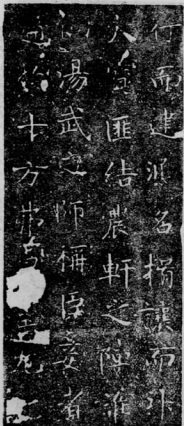 行而建洪名揖讓而升
大寶匪結農軒之陣誰
湯武之師稱臣妾者
於十方弗